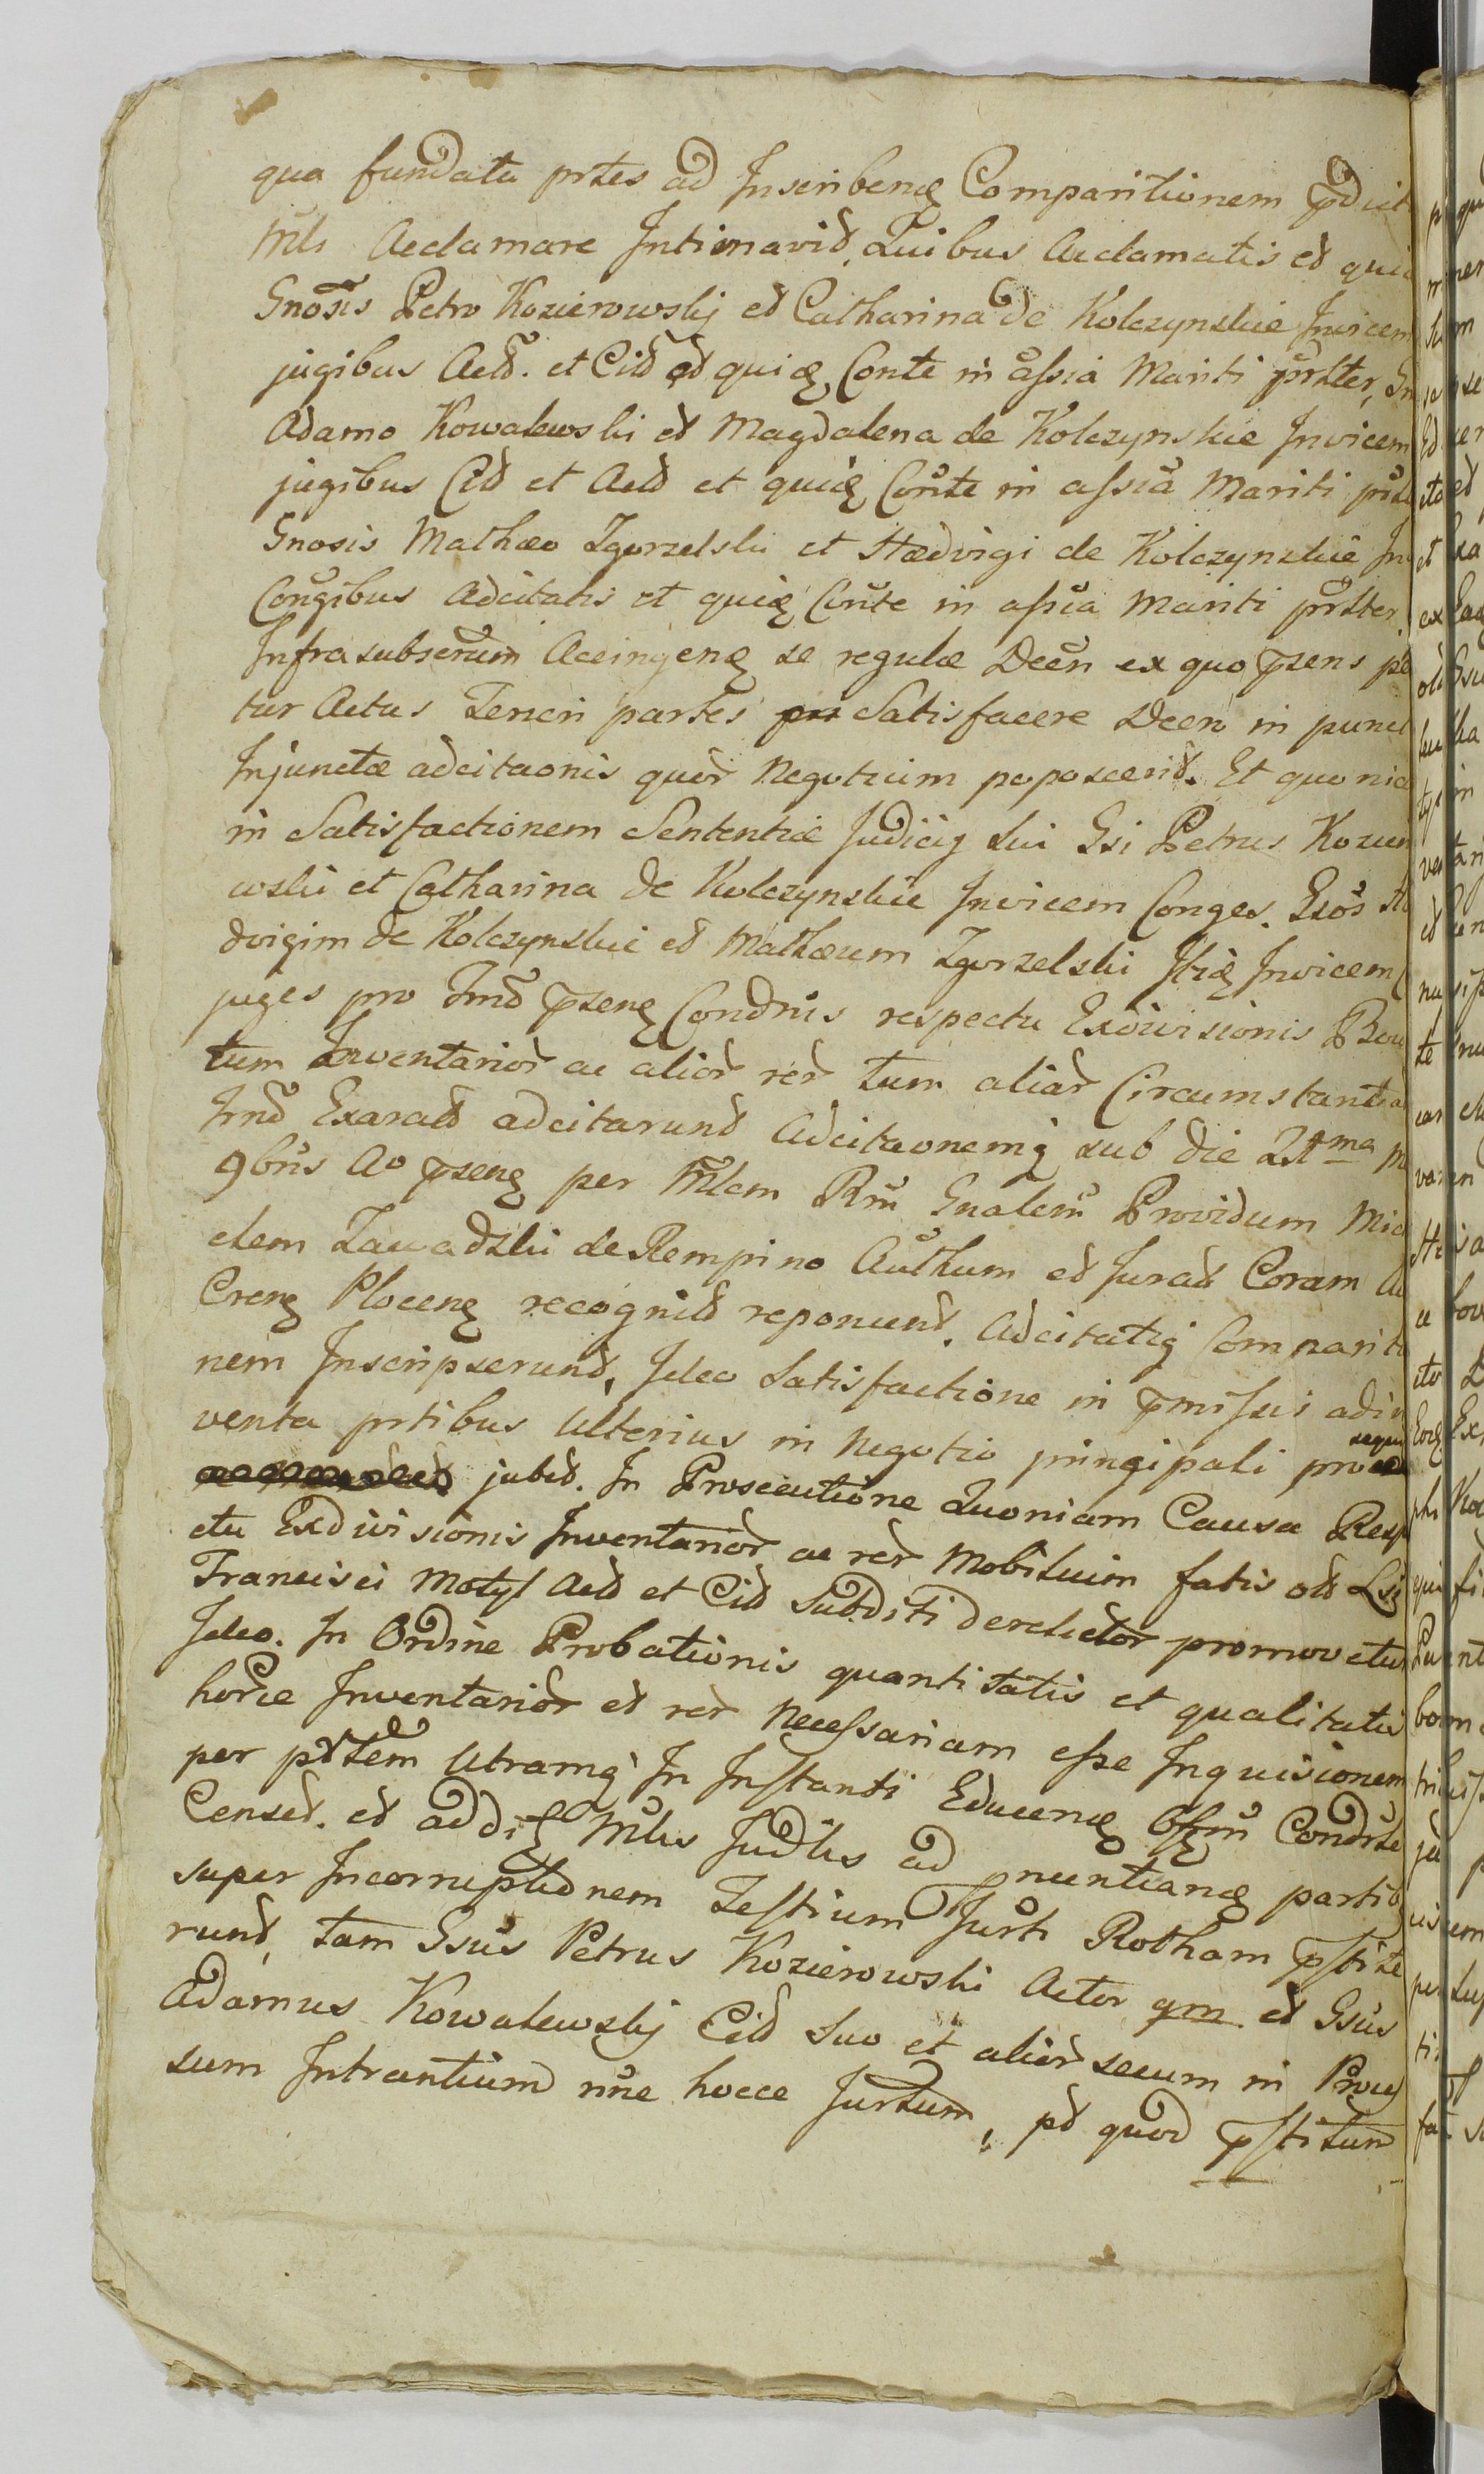 qua fundata prtes ad Inscribenę Comparitionem pdict
Mls Acclamare Intimavit. Quibus Acclamatis et qui
Gnosis Petro Kozierowskj et Catharina de Kolczynskie Invicem
jugibus Actt. et Citt et quię Conte in assia Mariti prster,
Adamo Kowalewski et Magdalena de Kolczynskie Invicem
jugibus Citt et Actt et quię Conte in assia Mariti prste
Gnosis Mathæo Zgorzelski et Hædvigi de Kolczynskie In
Congibus Adcitatis et quię Conte in assia Mariti prster.
Infrasubscrum Accingenę se regulæ Deen ex quo psens p
tur Actus Teneri partes Satisfacere Deen in punct
Injunctæ adcitaonis quor Negotium poposcerit. Et quonia
in Satisfactionem Sententiæ Judicij sui Gsi Petrus Kozier
wski et Catharina de Kolczynskie Invicem Conges. Gsos Hæ
dvigim de Kolczynskie et Mathæum Zgorzelski Invicem
juges pro Tmo psenę Condnis respectu Exdivisionis Bon
tum Inventarior ac alior rer tum aliar Circumstantia
Tmo Exaratt adcitarunt Adcitaonemq sub die 21ma
9bris Ao psenę per Mlem Rm Gnalem Providum Mic
elem Zawadzki de Rempino Authum et Juratt Coram
Crenę Plocenę recognitt reponunt. Adcitatiq Comparitio
nem Inscripserunt, Ideo Satisfactione in pmissis adin
venta prtibus Ulterius in Negotio principali proce
sequi
jubet. In Prosecutione Quoniam Causa Resp
ctu Exdivisionis Inventarior ac rer Mobilium fatis olt
Francisci Motyl Actt et Citt Subditi derelictor promovetur
Ideo. In Ordine Probationis quantitatis et qualitatis
horce Inventarior et rer Necessariam esse Inquisionem
per prtem Utramq In Instanti Educenę Condste
Censet. et Mlis Judlis ad nuntianę partib
super Incorruptionem Testium Jurti Rotham pstite
runt, tam Gsus Petrus Kozierowski Actor qm et Gsus
Adamus Kowalewskj Citt Suo et alior secum in Proces
sum Intrantium nne hocce Jurtum, pt quod pstitum